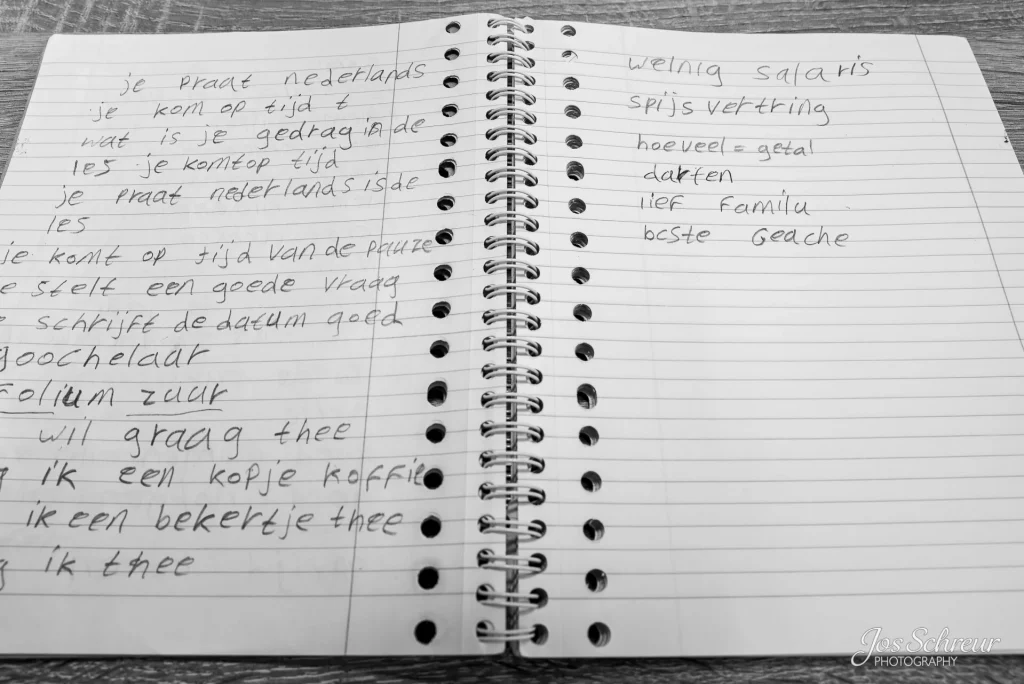 je praat nederlands
je kom op tijd t
wat is je gedrag in de
les je komt op tijd
je praat nederlands is de
les
je komt op tijd van de pauze
e stelt een goede vraag
schrijft de datum goed
goochelaar
Folium zuur
wil graag thee
ik een kopje koffie
ik een bekertje thee
ik thee
weinig salaris
spijs vertring
hoeveel = getal
darten
lief Familu
beste Geache
Jos Schreur
PHOTOGRAPHY